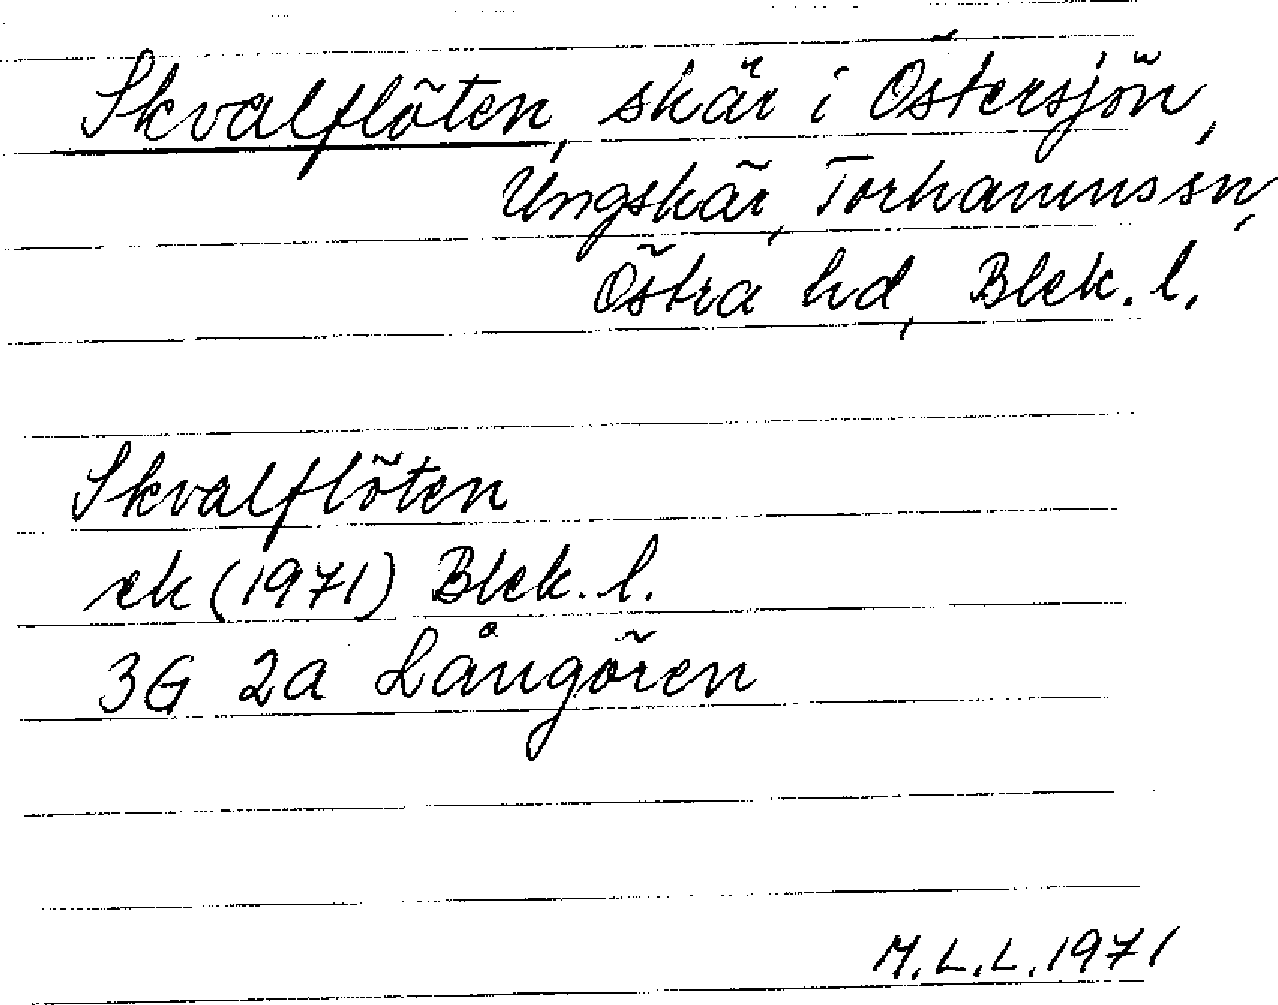 Skvalflöten, skär i Östersjön,
Ungskär, Torhamns sn,
Östra hd, Blek. l.
Skvalflöten
ek (1971) Blek. l.
3G 2a Långören
M.L.L. 1971